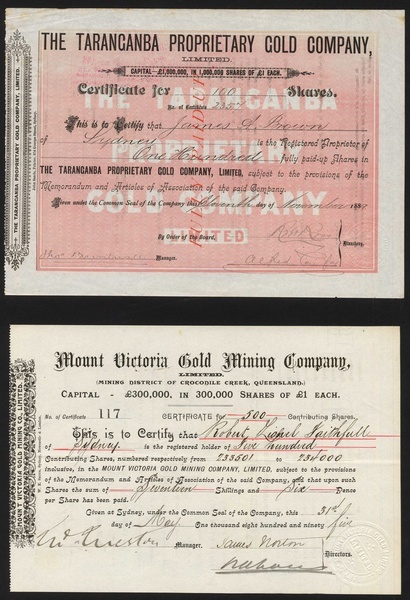 THE TARANGANBA PROPRIETARY GOLD COMPANY,
LIMITED.
CAPITAL—£1,000,000, IN 1,000,000 SHARES OF £1 EACH.
Certificate for 100 Shares.
No. of Certificate
This is to Certify that James
of Sydney is the Registered Proprietor of
One Hundred fully paid-up Shares in
THE TARANGANBA PROPRIETARY GOLD COMPANY, LIMITED, subject to the provisions of the
Memorandum and Articles of Association of the said Company.
Given under the Common Seal of the Company this day of November
By Order of the Board,
Manager.
Directors.
THE TARANGANBA PROPRIETARY GOLD COMPANY, LIMITED.
THE TARANGANBA
PROPRIETARY
GOLD COMPANY
LIMITED
Mount Victoria Gold Mining Company,
LIMITED.
(MINING DISTRICT OF CROCODILE CREEK, QUEENSLAND.)
CAPITAL - £300,000, IN 300,000 SHARES OF £1 EACH.
No. of Certificate 117 CERTIFICATE FOR 500 Contributing Shares.
This is to Certify that Robert Faithfull
of Sydney is the registered holder of Five hundred
Contributing Shares, numbered respectively from 233501 to 234000
inclusive, in the MOUNT VICTORIA GOLD MINING COMPANY, LIMITED, subject to the provisions of
the Memorandum and Articles of Association of the said Company, and that upon such
Shares the sum of Seventeen Shillings and Six Pence
per Share has been paid.
Given at Sydney, under the Common Seal of the Company, this 31st
day of May One thousand eight hundred and ninety five
Manager. James Norton
Directors.
MOUNT VICTORIA GOLD MINING CO., LIMITED.